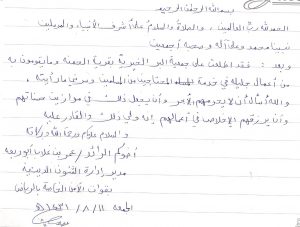 بسم الله الرحمن الرحيم
الحمد لله رب العالمين ، والصلاة والسلام على أشرف الأنبياء والمرسلين
نبينا محمد وعلى آله وصحبه أجمعين
وبعد : فقد اطلعت على جمعية البر الخيرية بقرية الحصمة وما يقومون به
من أعمال جليلة في خدمة المحتاجين من المسلمين وسرني ما رأيته ،
والله أسأل أن لا يحرمهم الأجر وأن يجعل ذلك في موازين حسناتهم
وأن يرزقهم الإخلاص في أعمالهم إنه ولي ذلك والقادر عليه
والسلام عليكم ورحمة الله وبركاته
أخوكم الرائد / عمر بن
مدير إدارة الشئون الدينية
بقوات الأمن الخاصة بالرياض
الجمعة ١١ / ٨ / ١٤٣١هـ